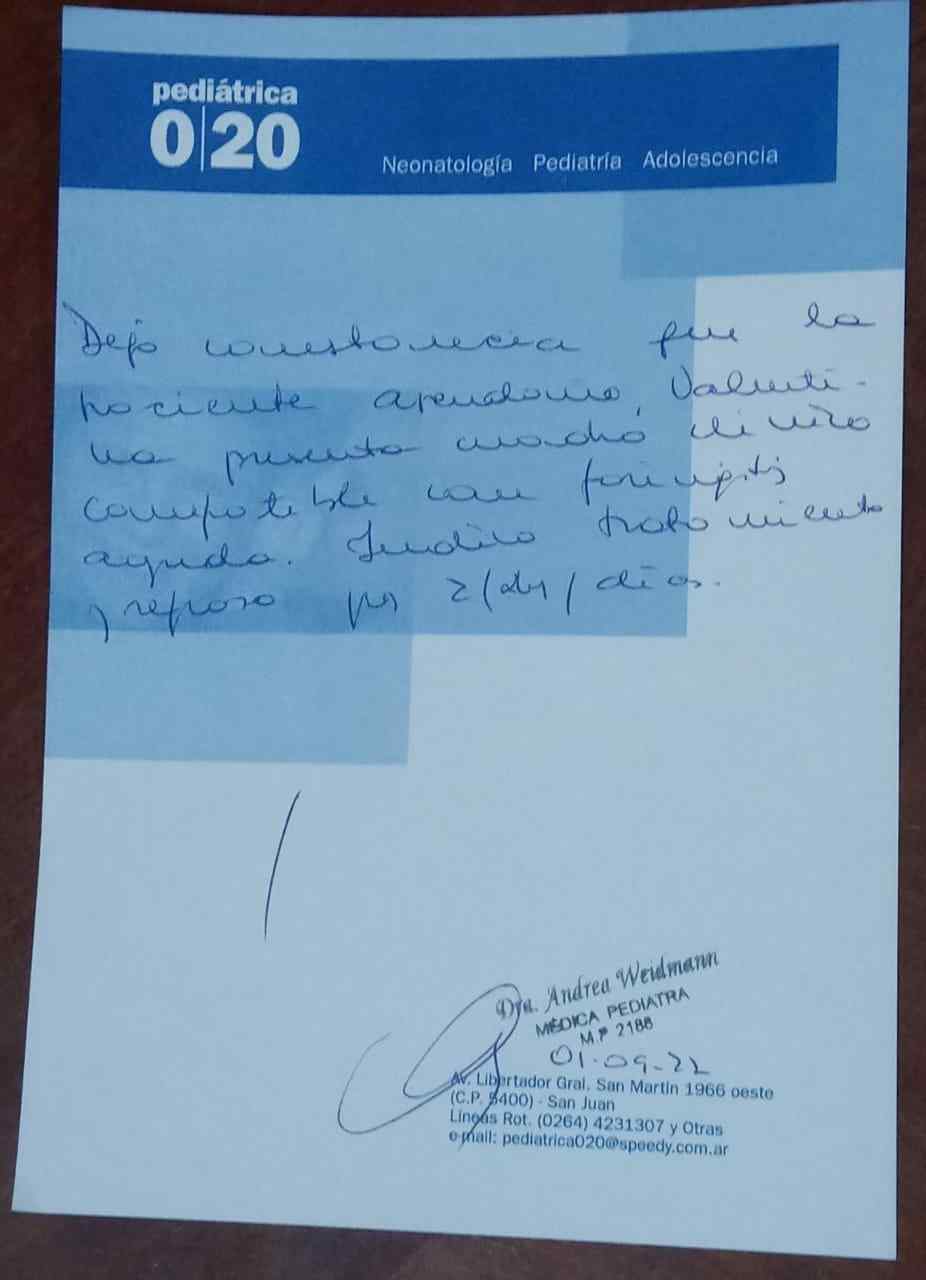 pediátrica
0|20
Neonatología Pediatría Adolescencia
Dejo constancia que la
paciente Valenti-
na presenta cuadro clínico
compatible con faringitis
aguda. Indico tratamiento
y reposo por 2/dos/días.
Dra. Andrea Weidmann
MÉDICA PEDIATRA
M.P 2188
01-09-22
Av. Libertador Gral. San Martín 1966 oeste
(C.P. 5400) - San Juan
Líneas Rot. (0264) 4231307 y Otras
e-mail: pediatrica020@speedy.com.ar